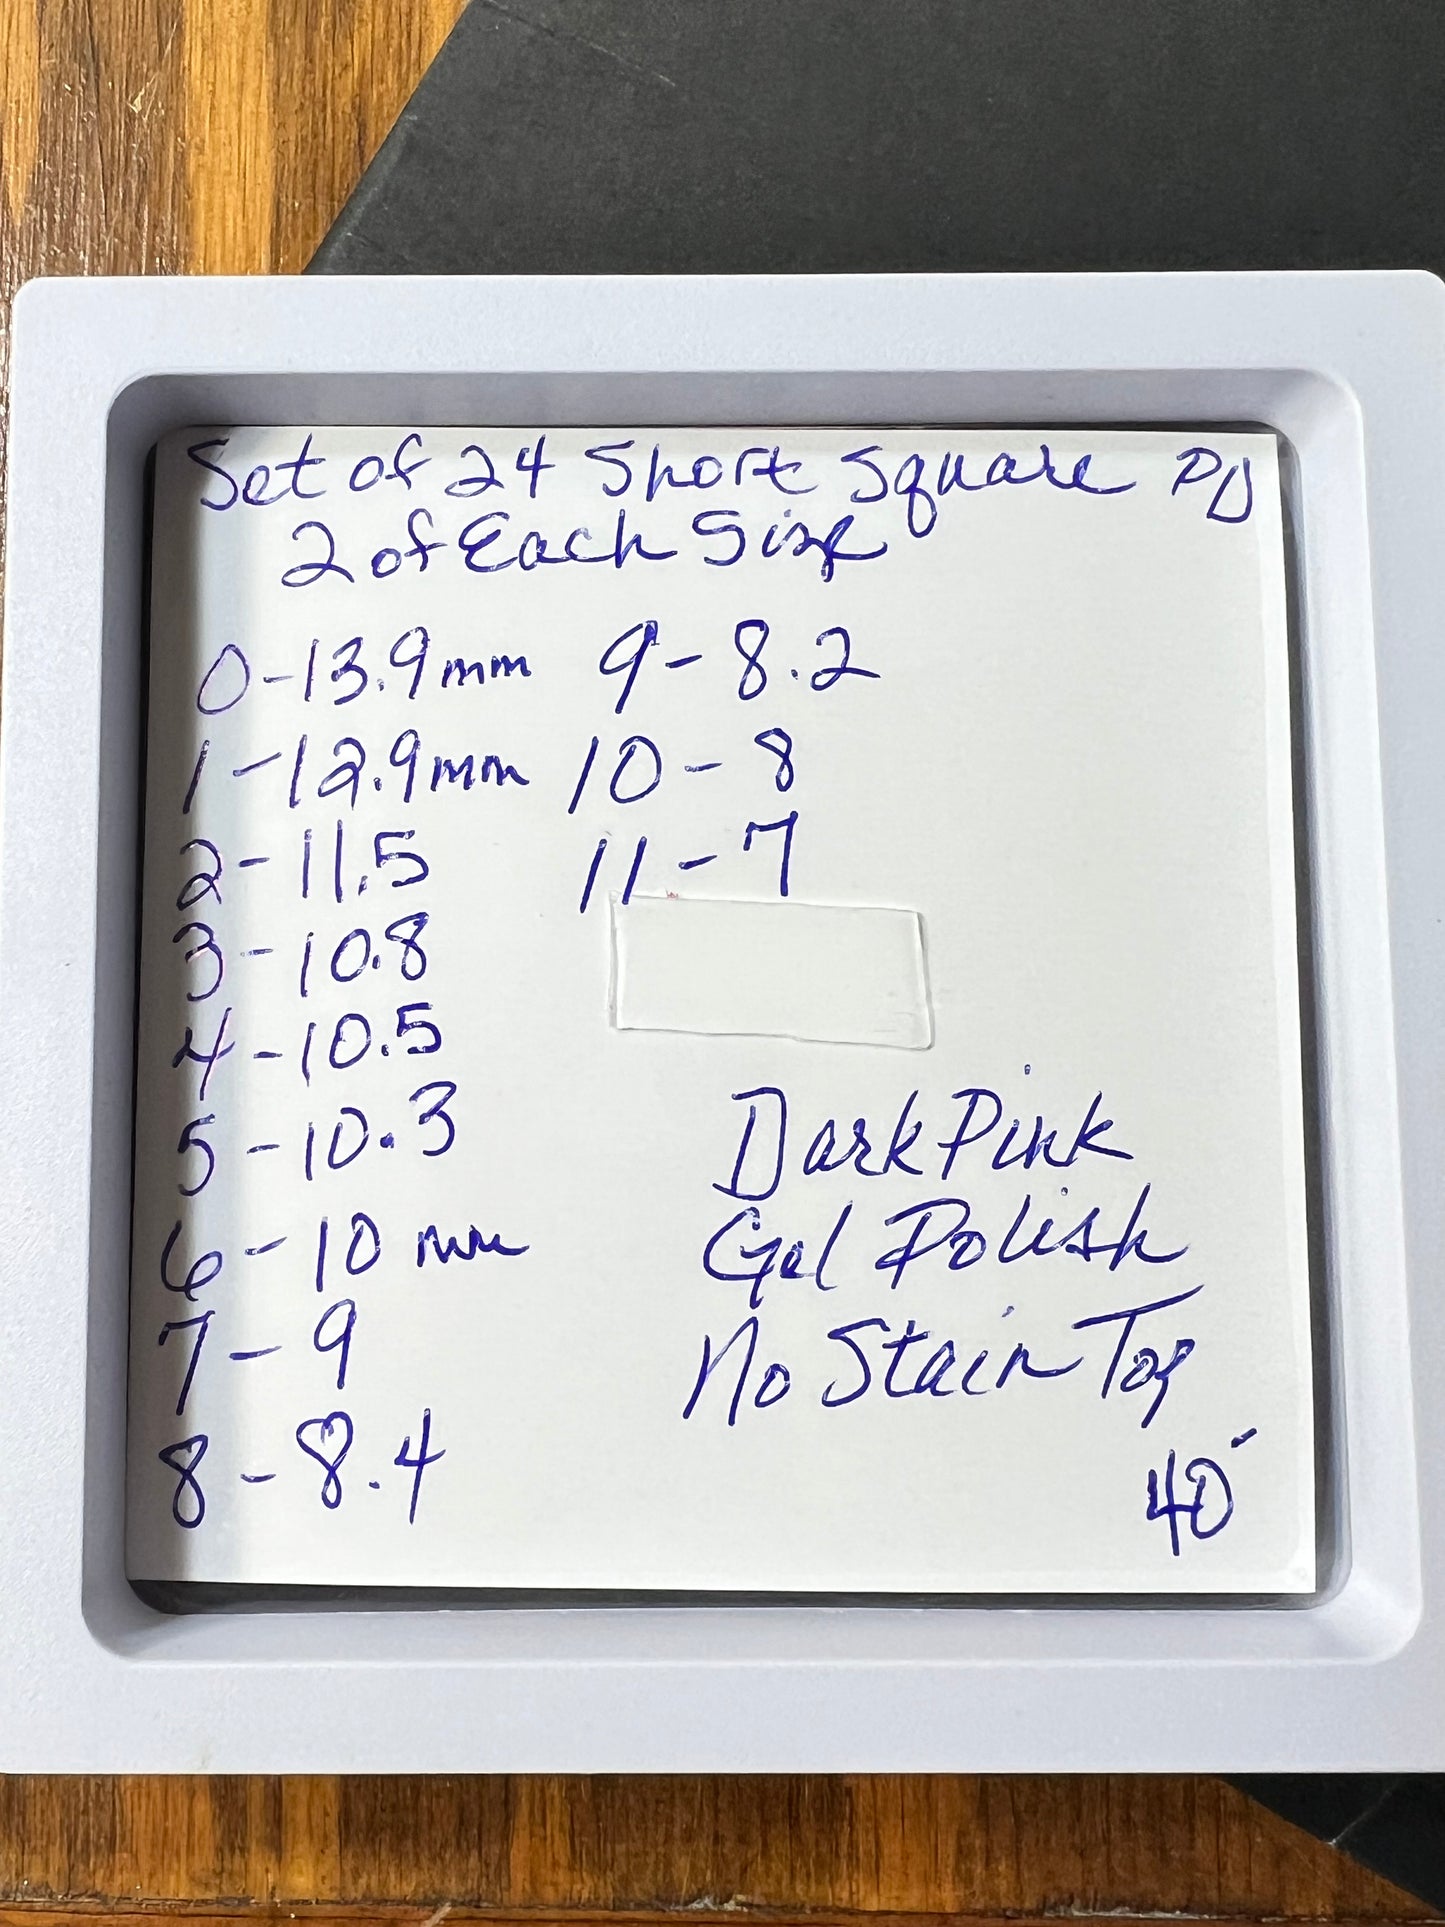 Set of 24 Short Square
2 of Each Size
0-13.9mm
1-12.9mm
2-11.5
3-10.8
4-10.5
5-10.3
6-10 mm
7-9
8-8.4
9-8.2
10-8
11-7
Dark Pink
Gel Polish
No Stain Top
40